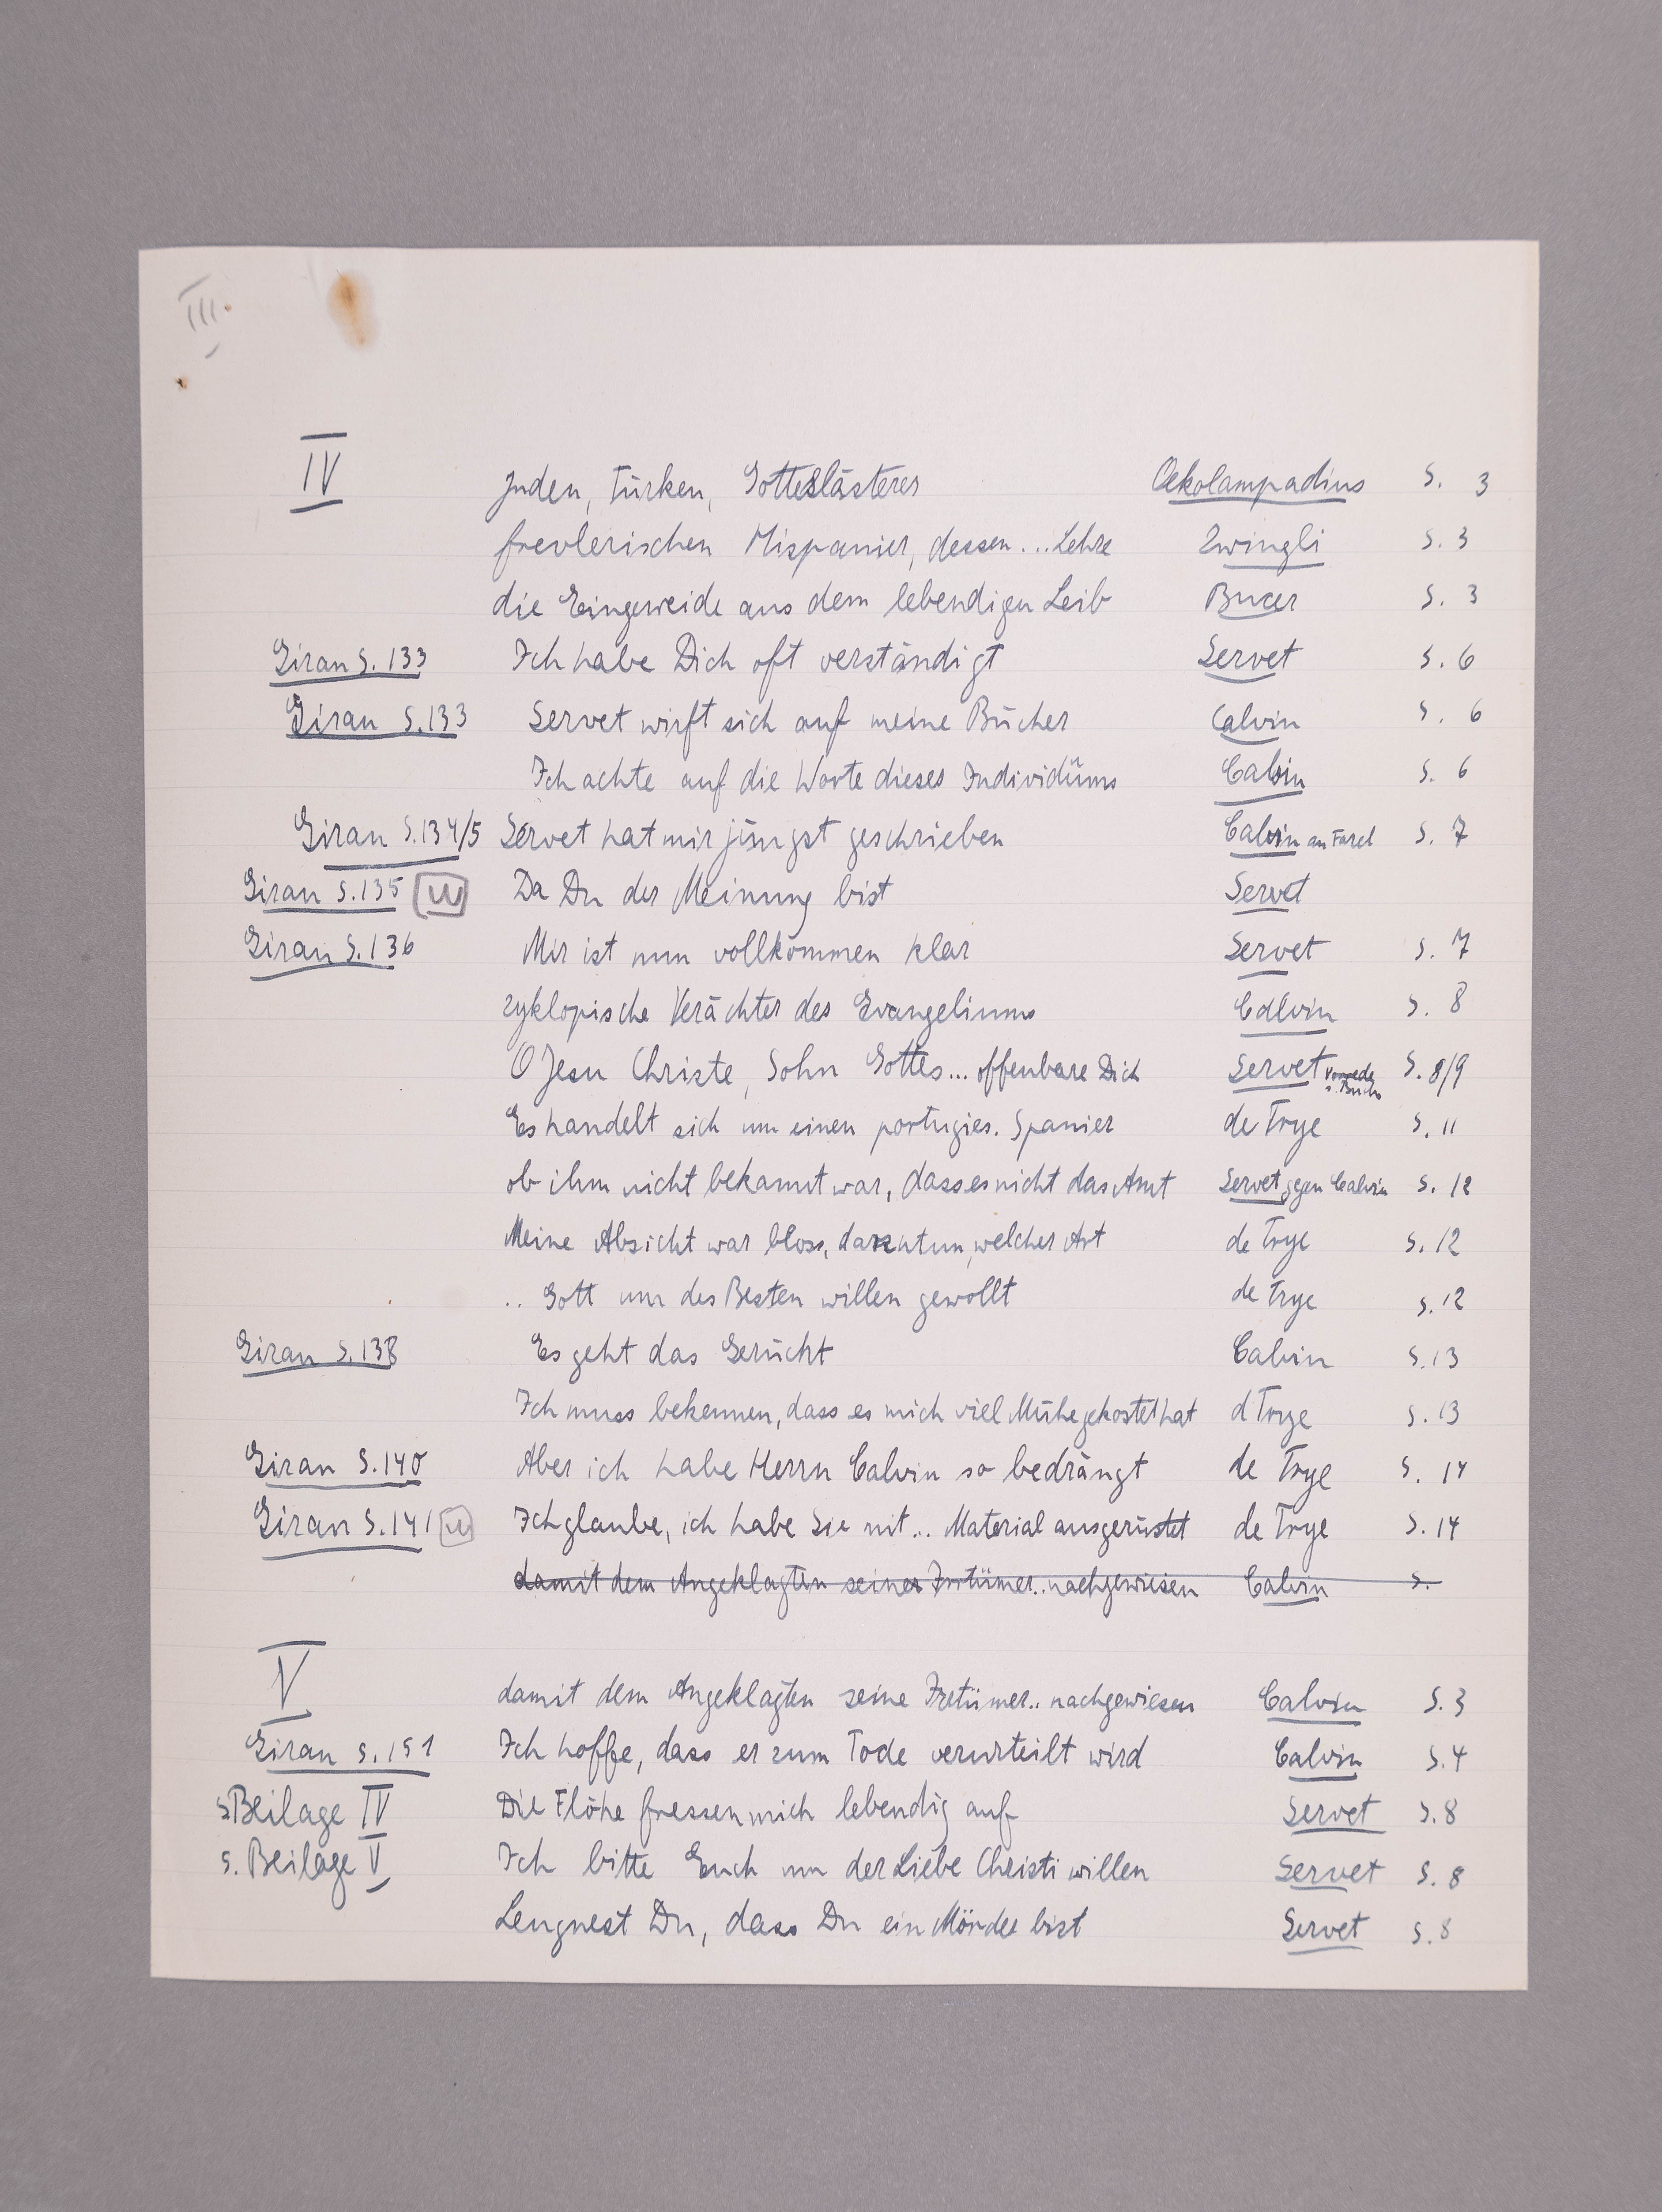 III.
IV Juden, Türken, Gotteslästerer Oekolampadius S. 3
frevlerischen Hispanier, dessen... Lehre Zwingli S. 3
die Eingeweide aus dem lebendigen Leib Bucer S. 3
Giran S. 133 Ich habe Dich oft verständigt Servet S. 6
Giran S. 133 Servet wirft sich auf meine Bücher Calvin S. 6
Ich achte auf die Worte dieses Individüums Calvin S. 6
Giran S. 134/5 Servet hat mir jüngst geschrieben Calvin an Farel S. 7
Giran S. 135 Da Du der Meinung bist Servet
Giran S. 136 Mir ist nun vollkommen klar Servet S. 7
zyklopische Verächter des Evangeliums Calvin S. 8
O Jesu Christe, Sohn Gottes... offenbare Dich Servet Vorrede s. Buchs S. 8/9
Es handelt sich um einen portugies. Spanier de Trye S. 11
ob ihm nicht bekannt war, dass es nicht das Amt Servet gegen Calvin S. 12
Meine Absicht war bloss, darzutun, welcher Art de Trye S. 12
.. Gott um des Besten willen gewollt de Trye S. 12
Giran S. 138 Es geht das Gerücht Calvin S. 13
Ich muss bekennen, dass es mich viel Mühe gekostet hat d Trye S. 13
Giran S. 140 Aber ich habe Herrn Calvin so bedrängt de Trye S. 14
Giran S. 141 Ich glaube, ich habe Sie mit... Material ausgerüstet de Trye S. 14
damit dem Angeklagten seine Irrtümer.. nachgewiesen Calvin S.
V damit dem Angeklagten seine Irrtümer.. nachgewiesen Calvin S. 3
Giran S. 151 Ich hoffe, dass er zum Tode verurteilt wird Calvin S. 4
s. Beilage IV Die Flöhe fressen mich lebendig auf Servet S. 8
s. Beilage V Ich bitte Euch um der Liebe Christi willen Servet S. 8
Leugnest Du, dass Du ein Mörder bist Servet S. 8